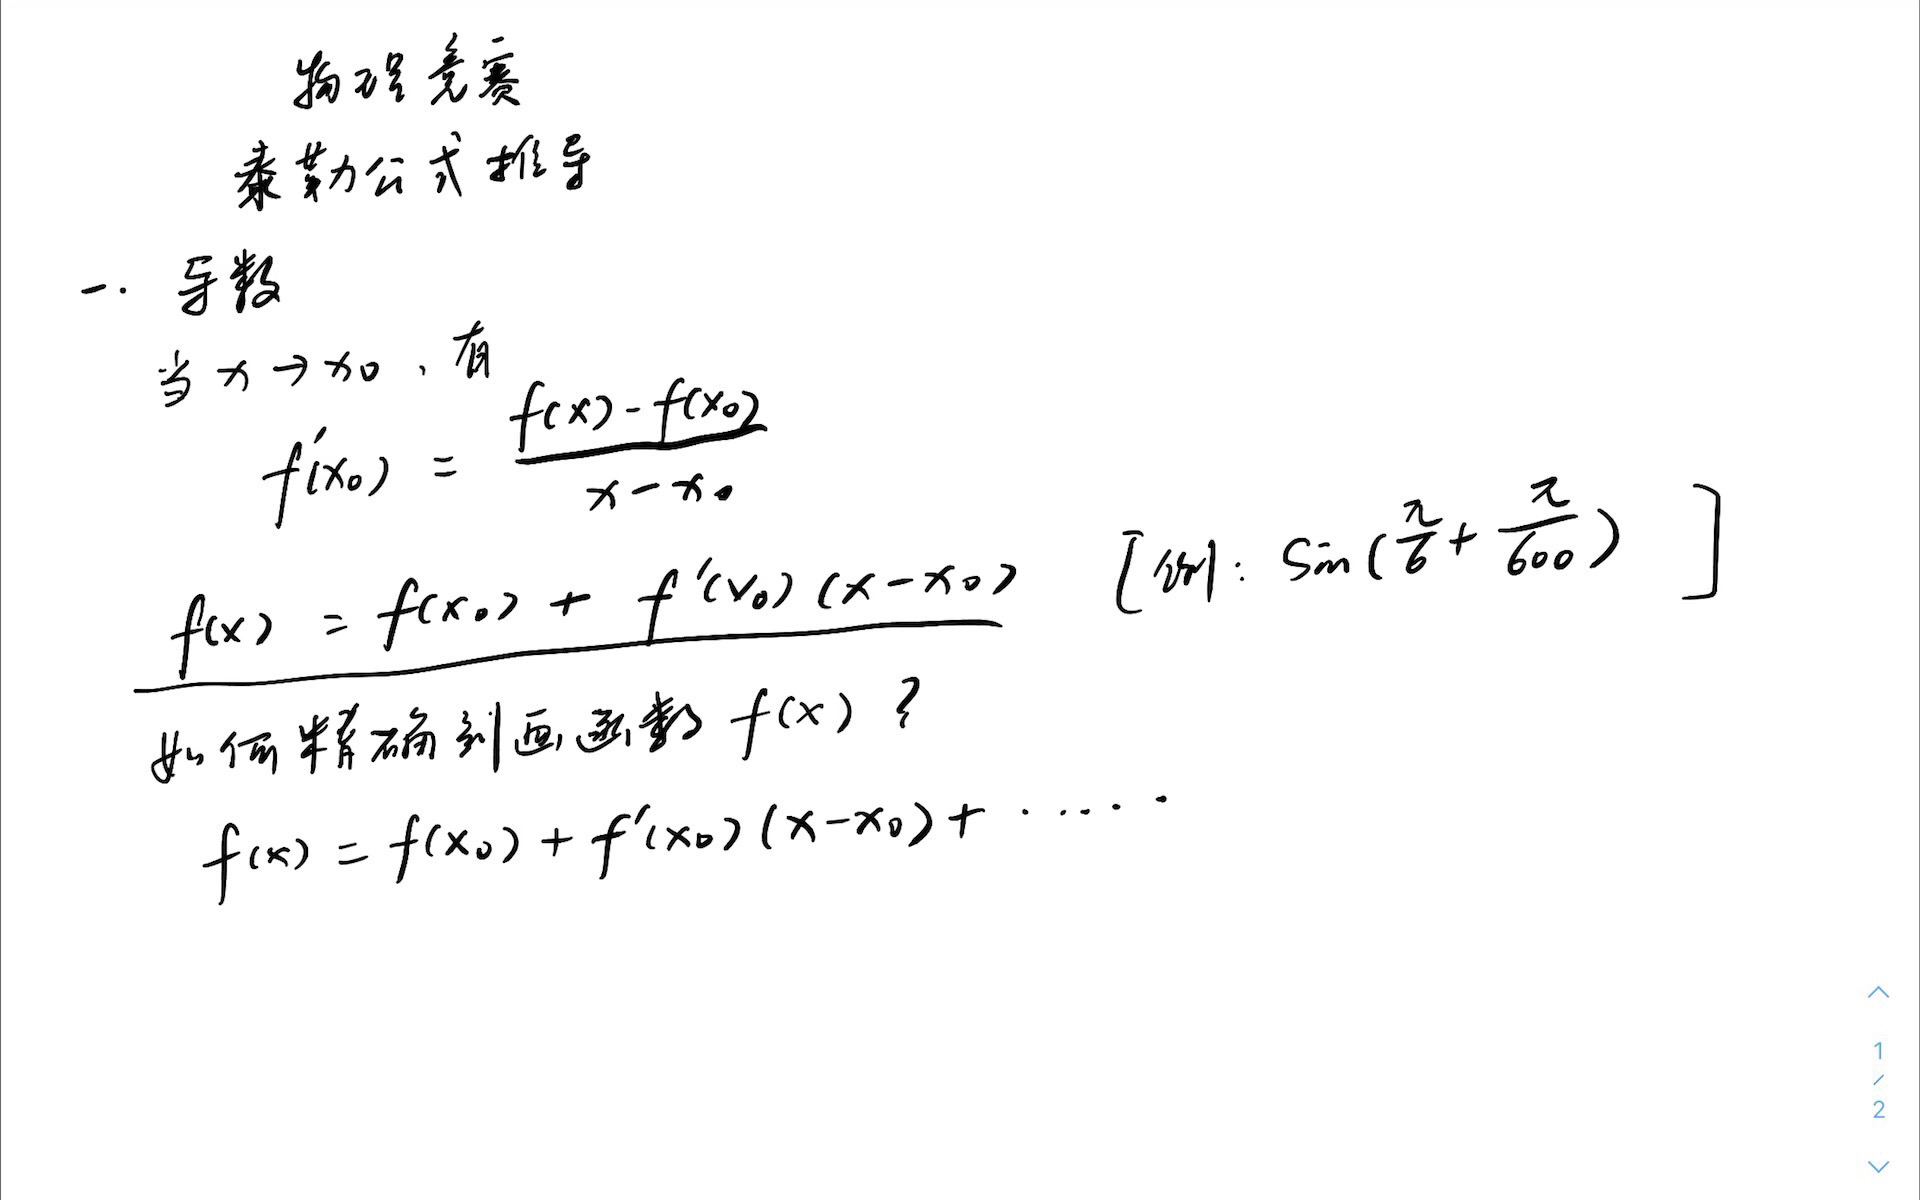 物理竞赛
泰勒公式推导
一. 导数
当 x → x₀ , 有
f'(x₀) = \frac{f(x) - f(x₀)}{x - x₀}
f(x) = f(x₀) + f'(x₀) (x - x₀) [例: Sin(\frac{π}{6} + \frac{π}{600}) ]
如何精确刻画函数 f(x) ?
f(x) = f(x₀) + f'(x₀) (x - x₀) + ······
1
/
2